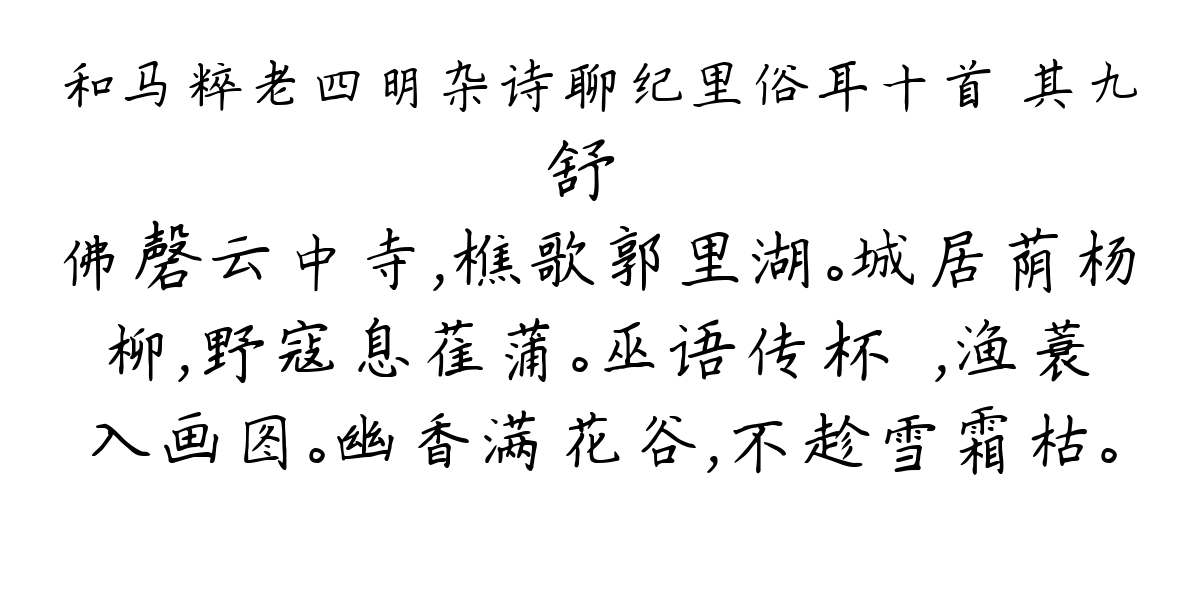 和马粹老四明杂诗聊纪里俗耳十首 其九
舒
佛磬云中寺,樵歌郭里湖。城居荫杨
柳,野寇息萑蒲。巫语传杯 ,渔蓑
入画图。幽香满花谷,不趁雪霜枯。